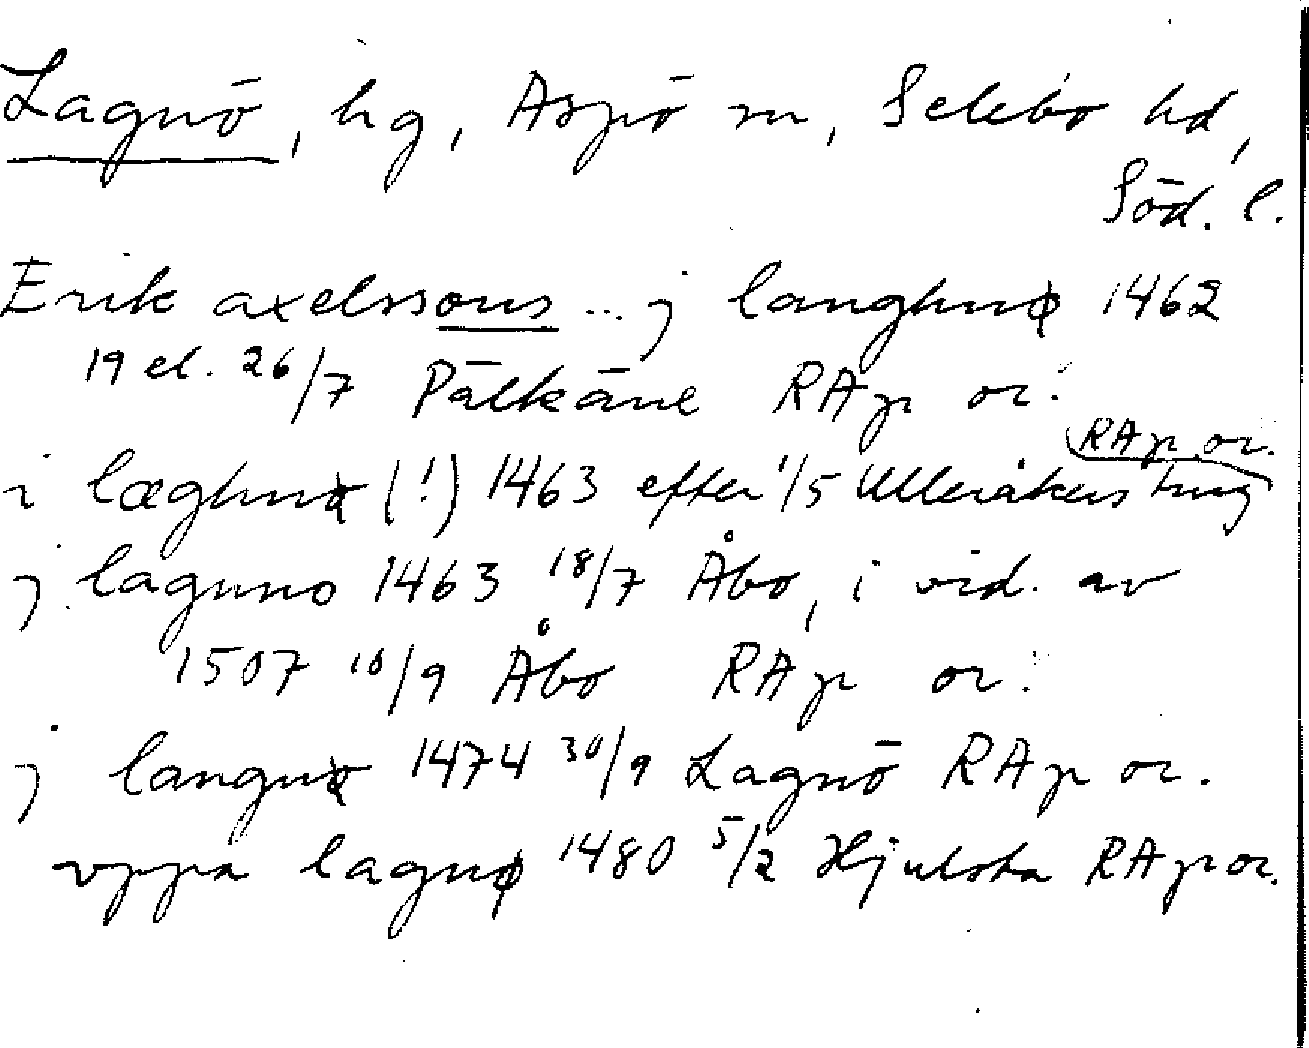 Lagnö, hg, Aspö sn, Selebo hd,
Söd. l.
Erik axelssons ... j langhnø 1462
19 el. 26/7 Pälkäne RAp or.
RAp or.
i læghnø (!) 1463 efter 1/5 Ulleråkers ting
j lagnno 1463 18/7 Åbo, i vid. av
1507 10/9 Åbo RAp or.
j langnø 1474 30/9 Lagnö RAp or.
vppa lagnø 1480 5/2 Hjulsta RAp or.